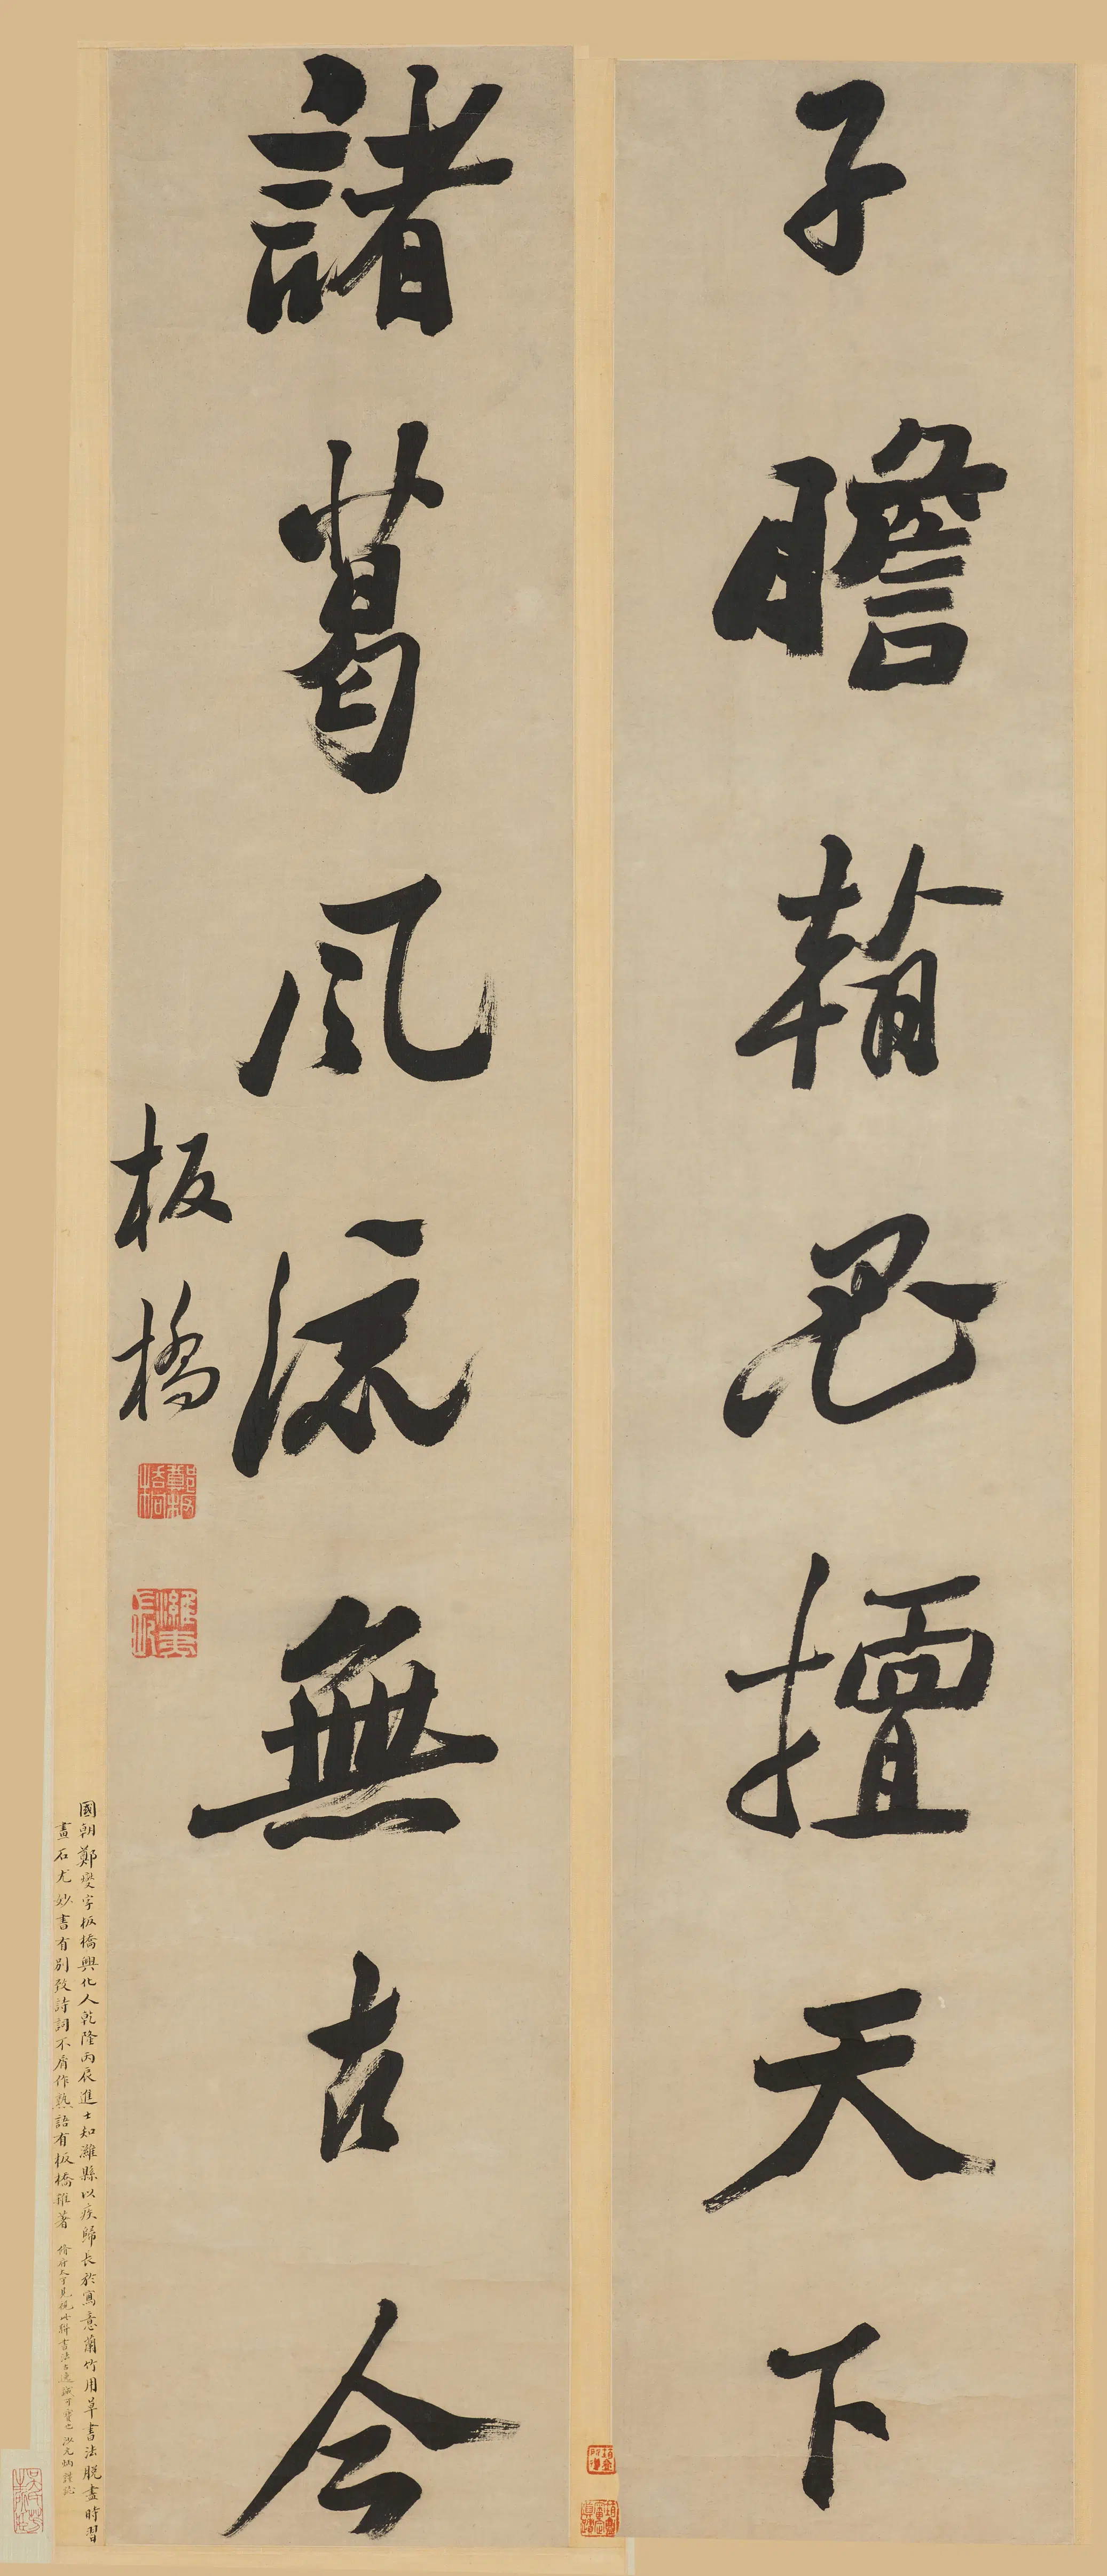 子瞻翰墨擅天下
諸葛風流無古今
板橋
鄭板橋
濰夷長
國朝鄭燮字板橋興化人乾隆丙辰進士知濰縣以疾歸長於寫意蘭竹用草書法脫盡時習
畫石尤妙書有別致詩詞不屑作熟語有板橋雜著